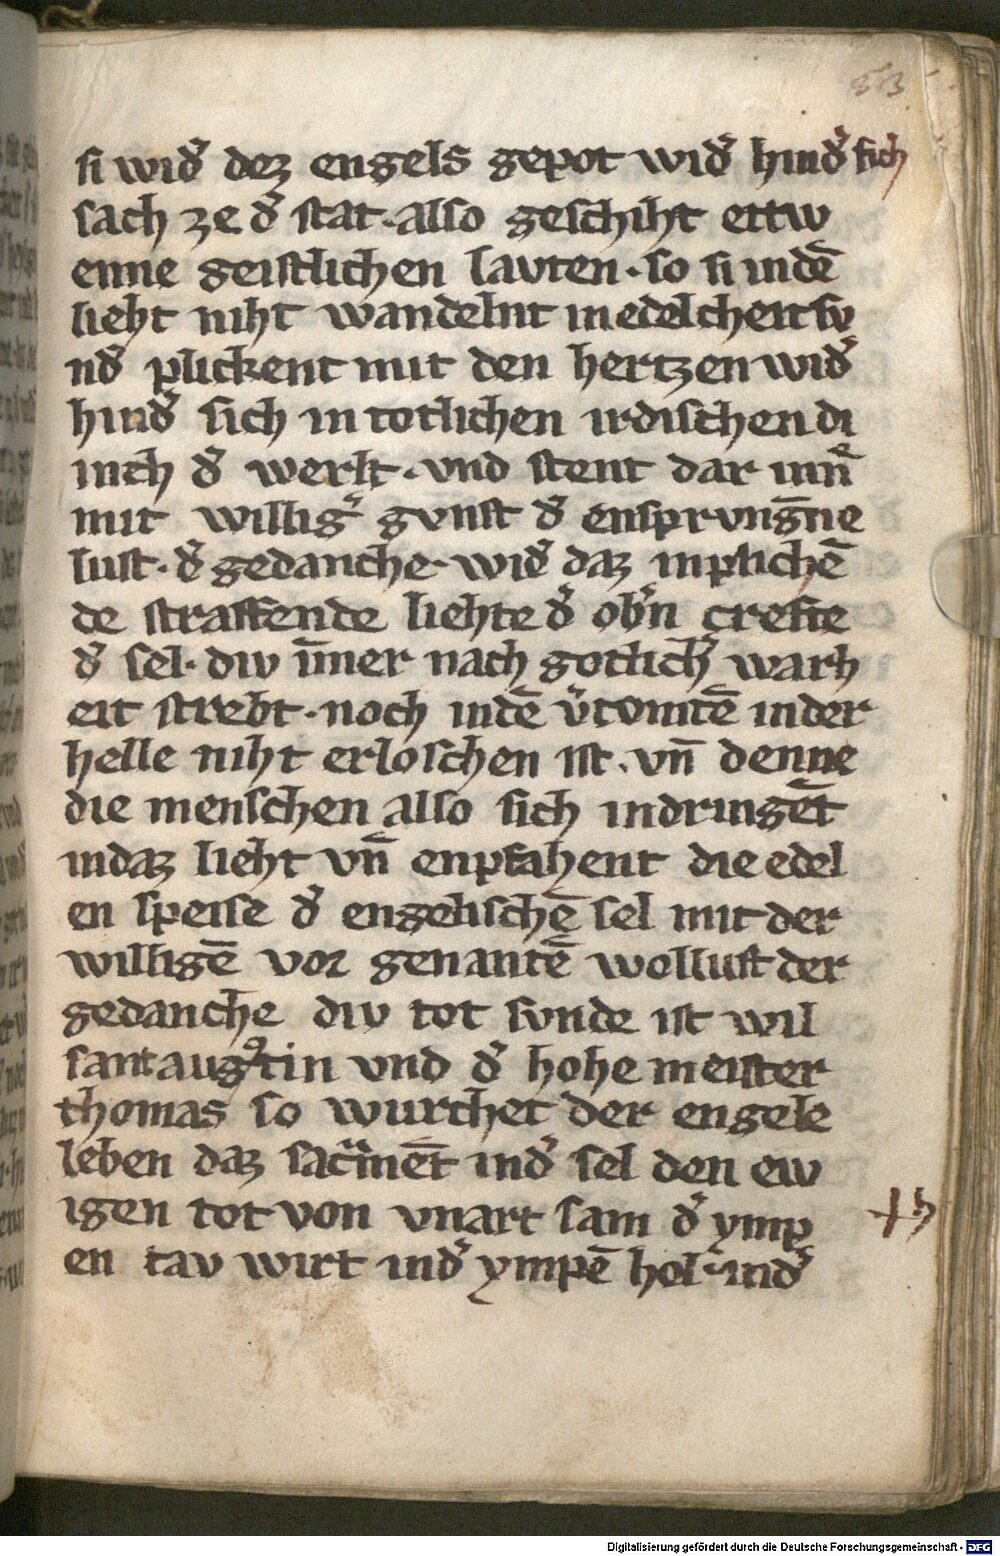 53
si wid᷑ dez engels gepot wid᷑ hind᷑ sich
sach ze d᷑ stat · also geschiht ettw
enne geistlichen lavten · so si indē
lieht niht wandelnt in edelcheit sv
nd᷑ plickent mit den hertzen wid᷑
hind᷑ sich in totlichen irdischen di
inch d᷑ werk · vnd stent dar inn᷑
mit willig᷑ gvnst d᷑ ensprvnḡne
lust · d᷑ gedanche · wid᷑ daz inplichē
de straffende liehte d᷑ ob᷑n crefte
d᷑ sel · div īmer nach gotlich᷑ warh
eit strebt · noch indē v᷑tomtē in der
helle niht erloschen ist · vn̄ denne
die menschen also sich indringēt
indaz lieht vn̄ enpfahent die edel
en speise d᷑ engelischē sel mit der
willigē vor genantē wollust der
gedanche div tot svnde ist wil
sant augꝰtin vnd d᷑ hohe meister
thomas so wurchet der engele
leben daz sac᷑mēt ind᷑ sel den ew
igen tot von vnart sam d᷑ ymp
en tav wirt ind᷑ ympē hol · ind᷑
Digitalisierung gefördert durch die Deutsche Forschungsgemeinschaft - DFG